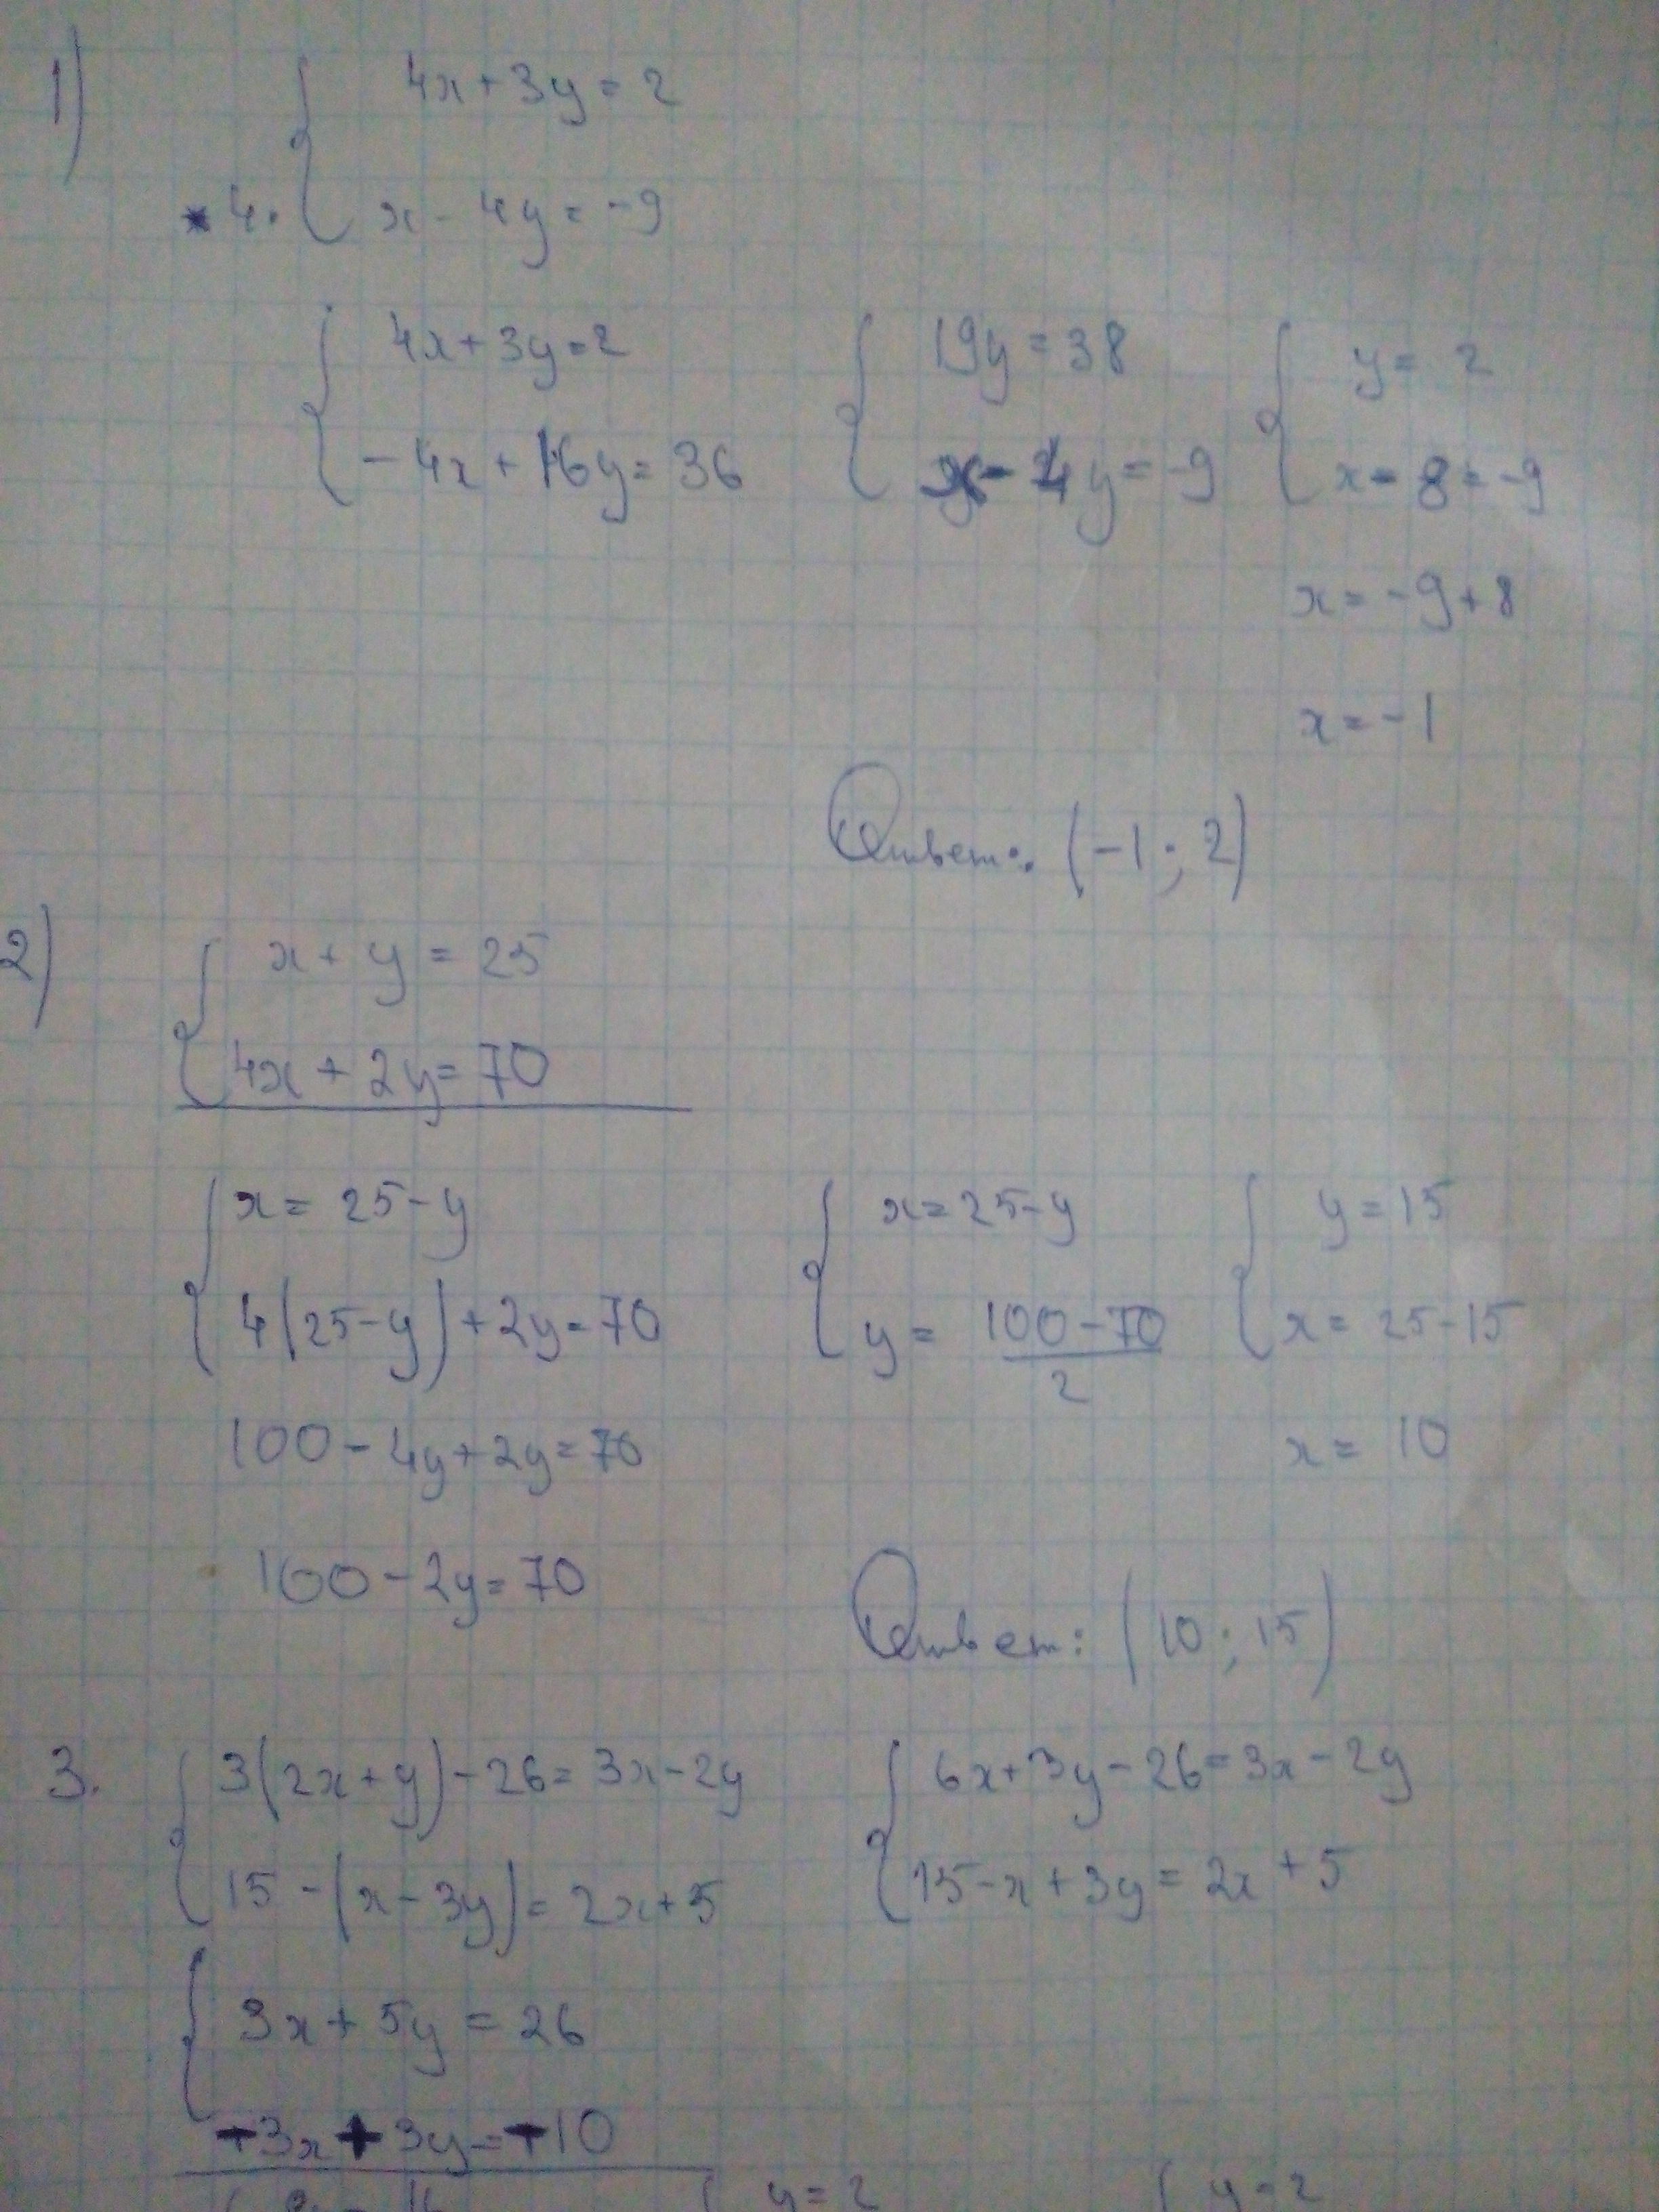 1) 4x+3y=2
*4. x-4y=-9
4x+3y=2
-4x+16y=36
19y=38
x-4y=-9
y=2
x-8=-9
x=-9+8
x=-1
Ответ: (-1; 2)
2) x+y=25
4x+2y=70
x=25-y
4(25-y)+2y=70
100-4y+2y=70
100-2y=70
x=25-y
y=100-70
2
y=15
x=25-15
x=10
Ответ: (10; 15)
3. 3(2x+y)-26=3x-2y
15-(x-3y)=2x+5
6x+3y-26=3x-2y
15-x+3y=2x+5
3x+5y=26
-3x+3y=-10
y=2
y=2